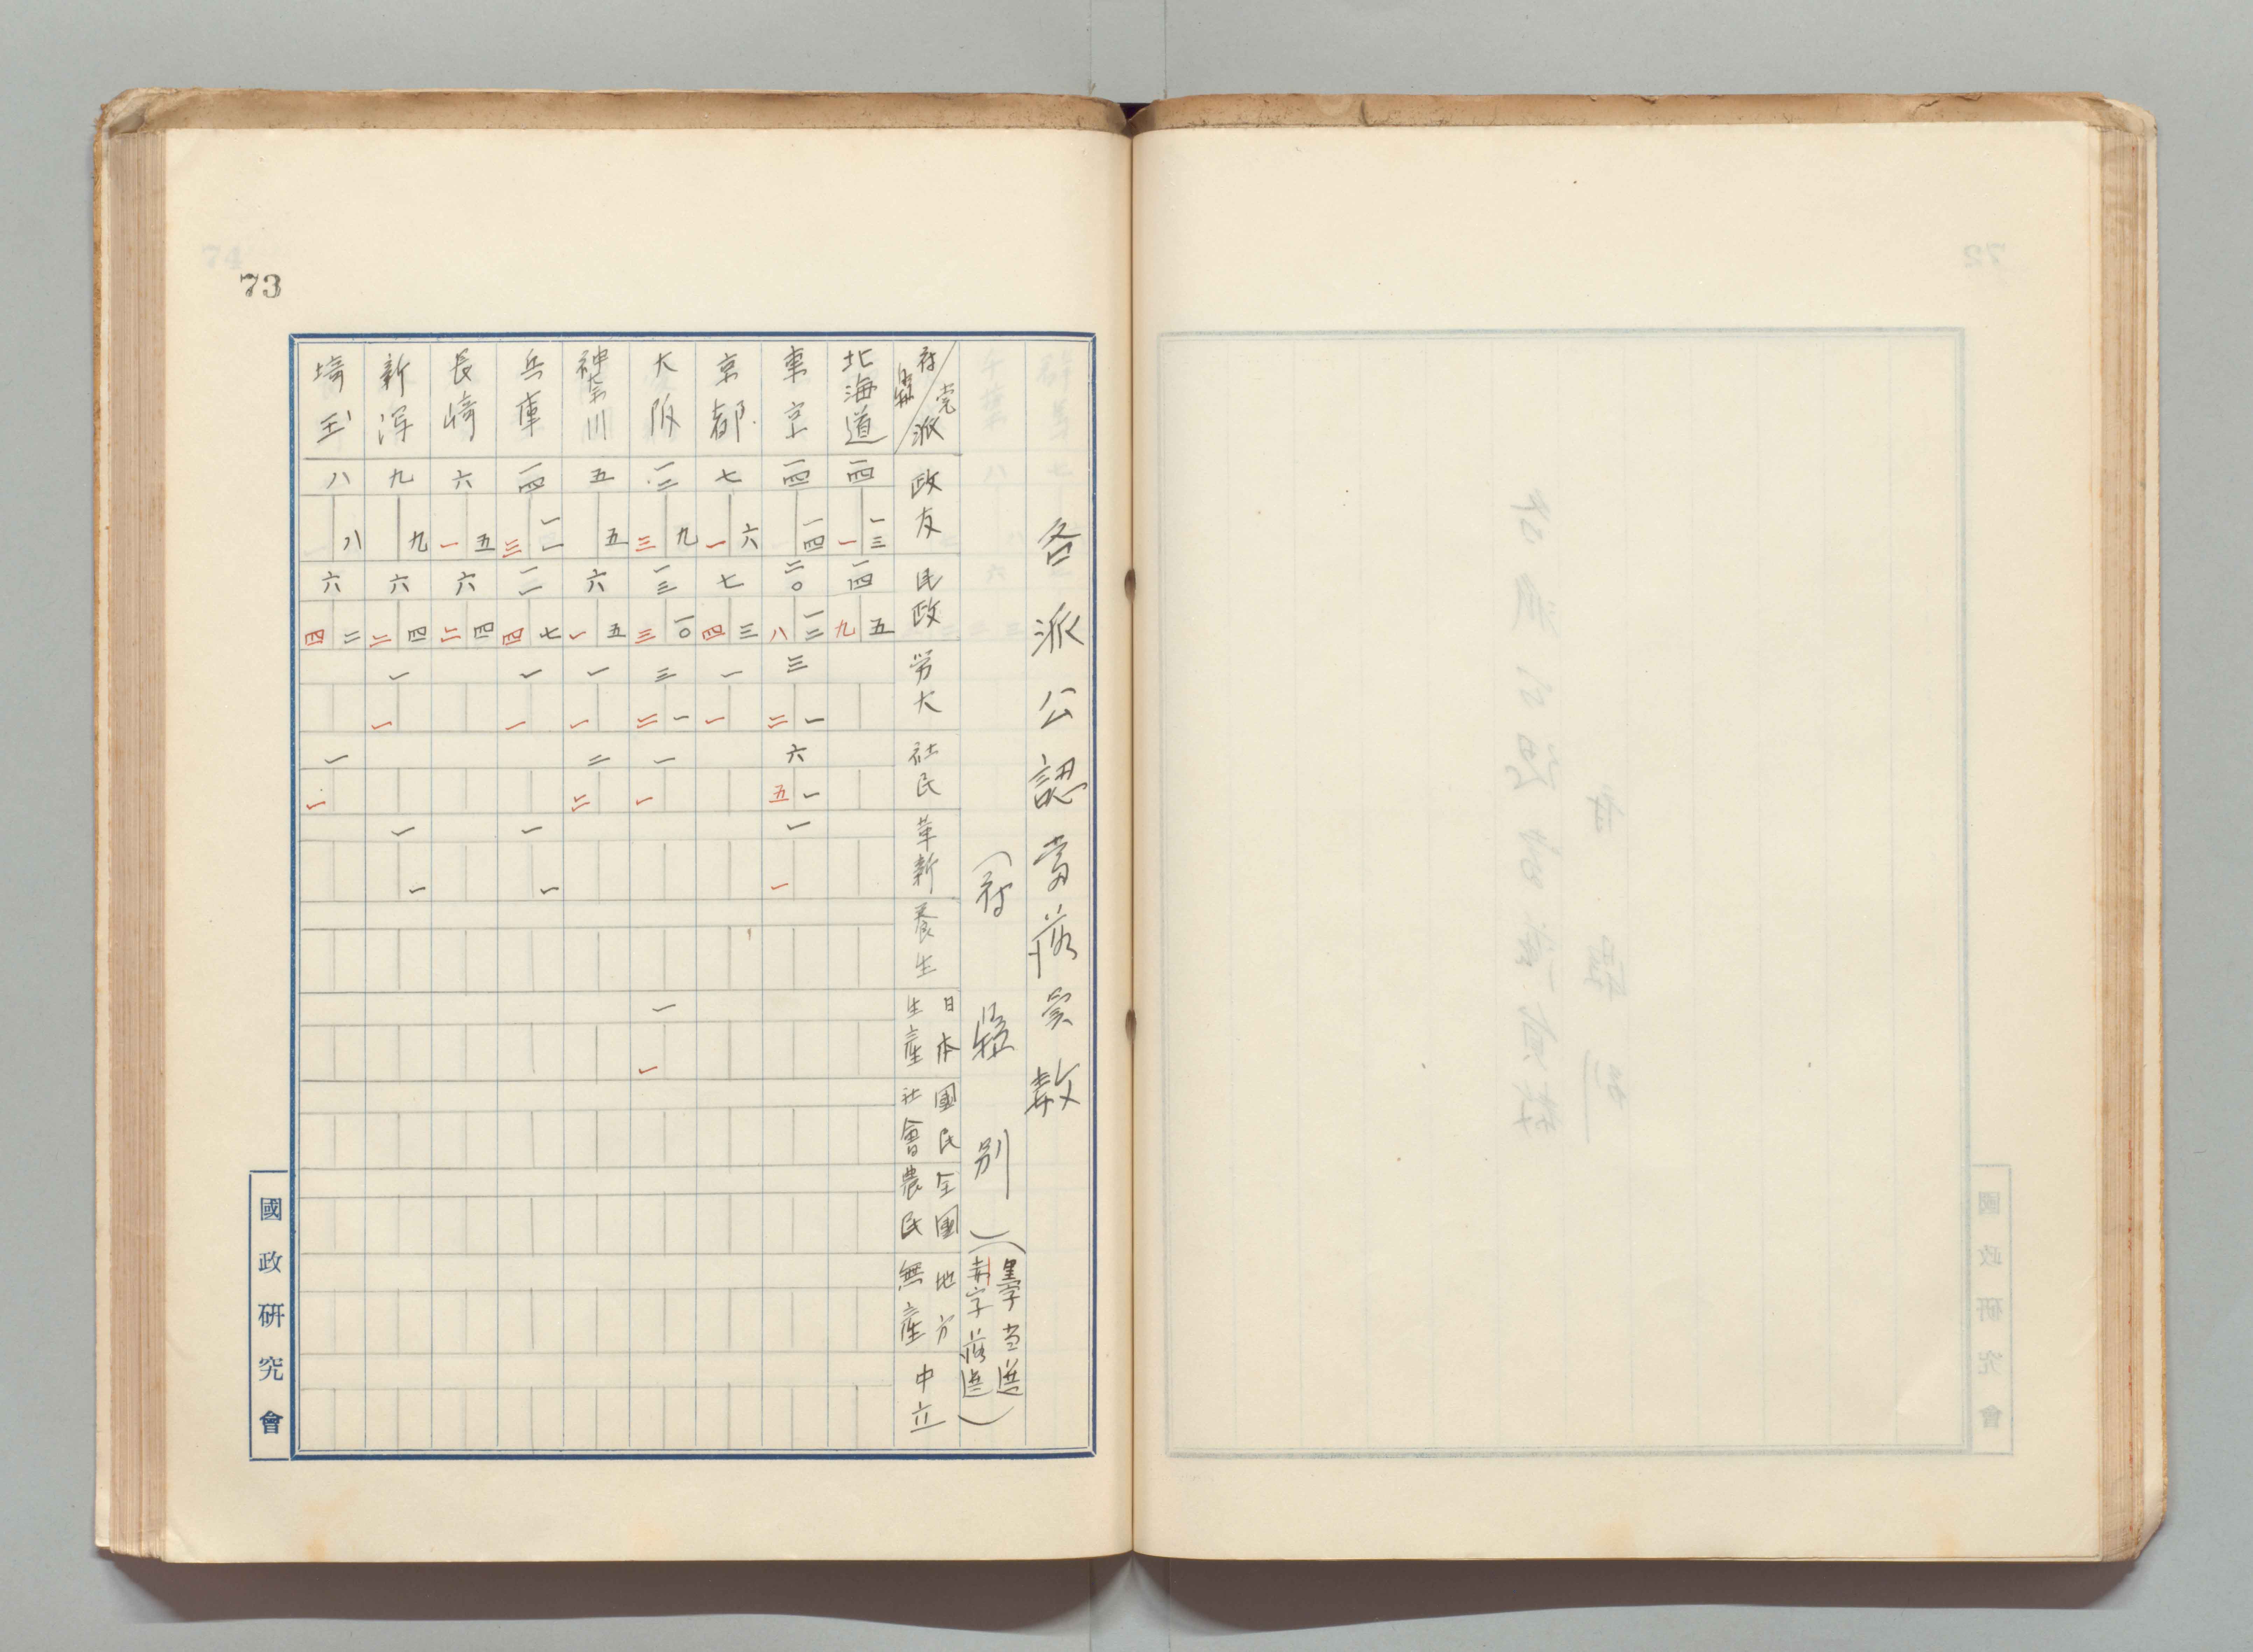 各派公認当落員数
(府縣別)
(墨字当選
赤字落選)
府縣 党派 政友 民政 労大 社民 革新 養生 日本生産 國民社會 全国農民 地方無産 中立
北海道 一四 一三 一 一四 五 九
東京 一四 一四 二〇 一二 八 三 一 二 六 一 五 一 一
京都 七 六 一 七 三 四 一 一
大阪 一二 九 三 一三 一〇 三 三 一 二 一 一 一 一
神奈川 五 五 六 五 一 一 一 二 二
兵庫 一四 一一 三 一一 七 四 一 一 一 一
長崎 六 五 一 六 四 二
新潟 九 九 六 四 二 一 一 一 一
埼玉 八 八 六 二 四 一 一
國政研究會
73
74
72